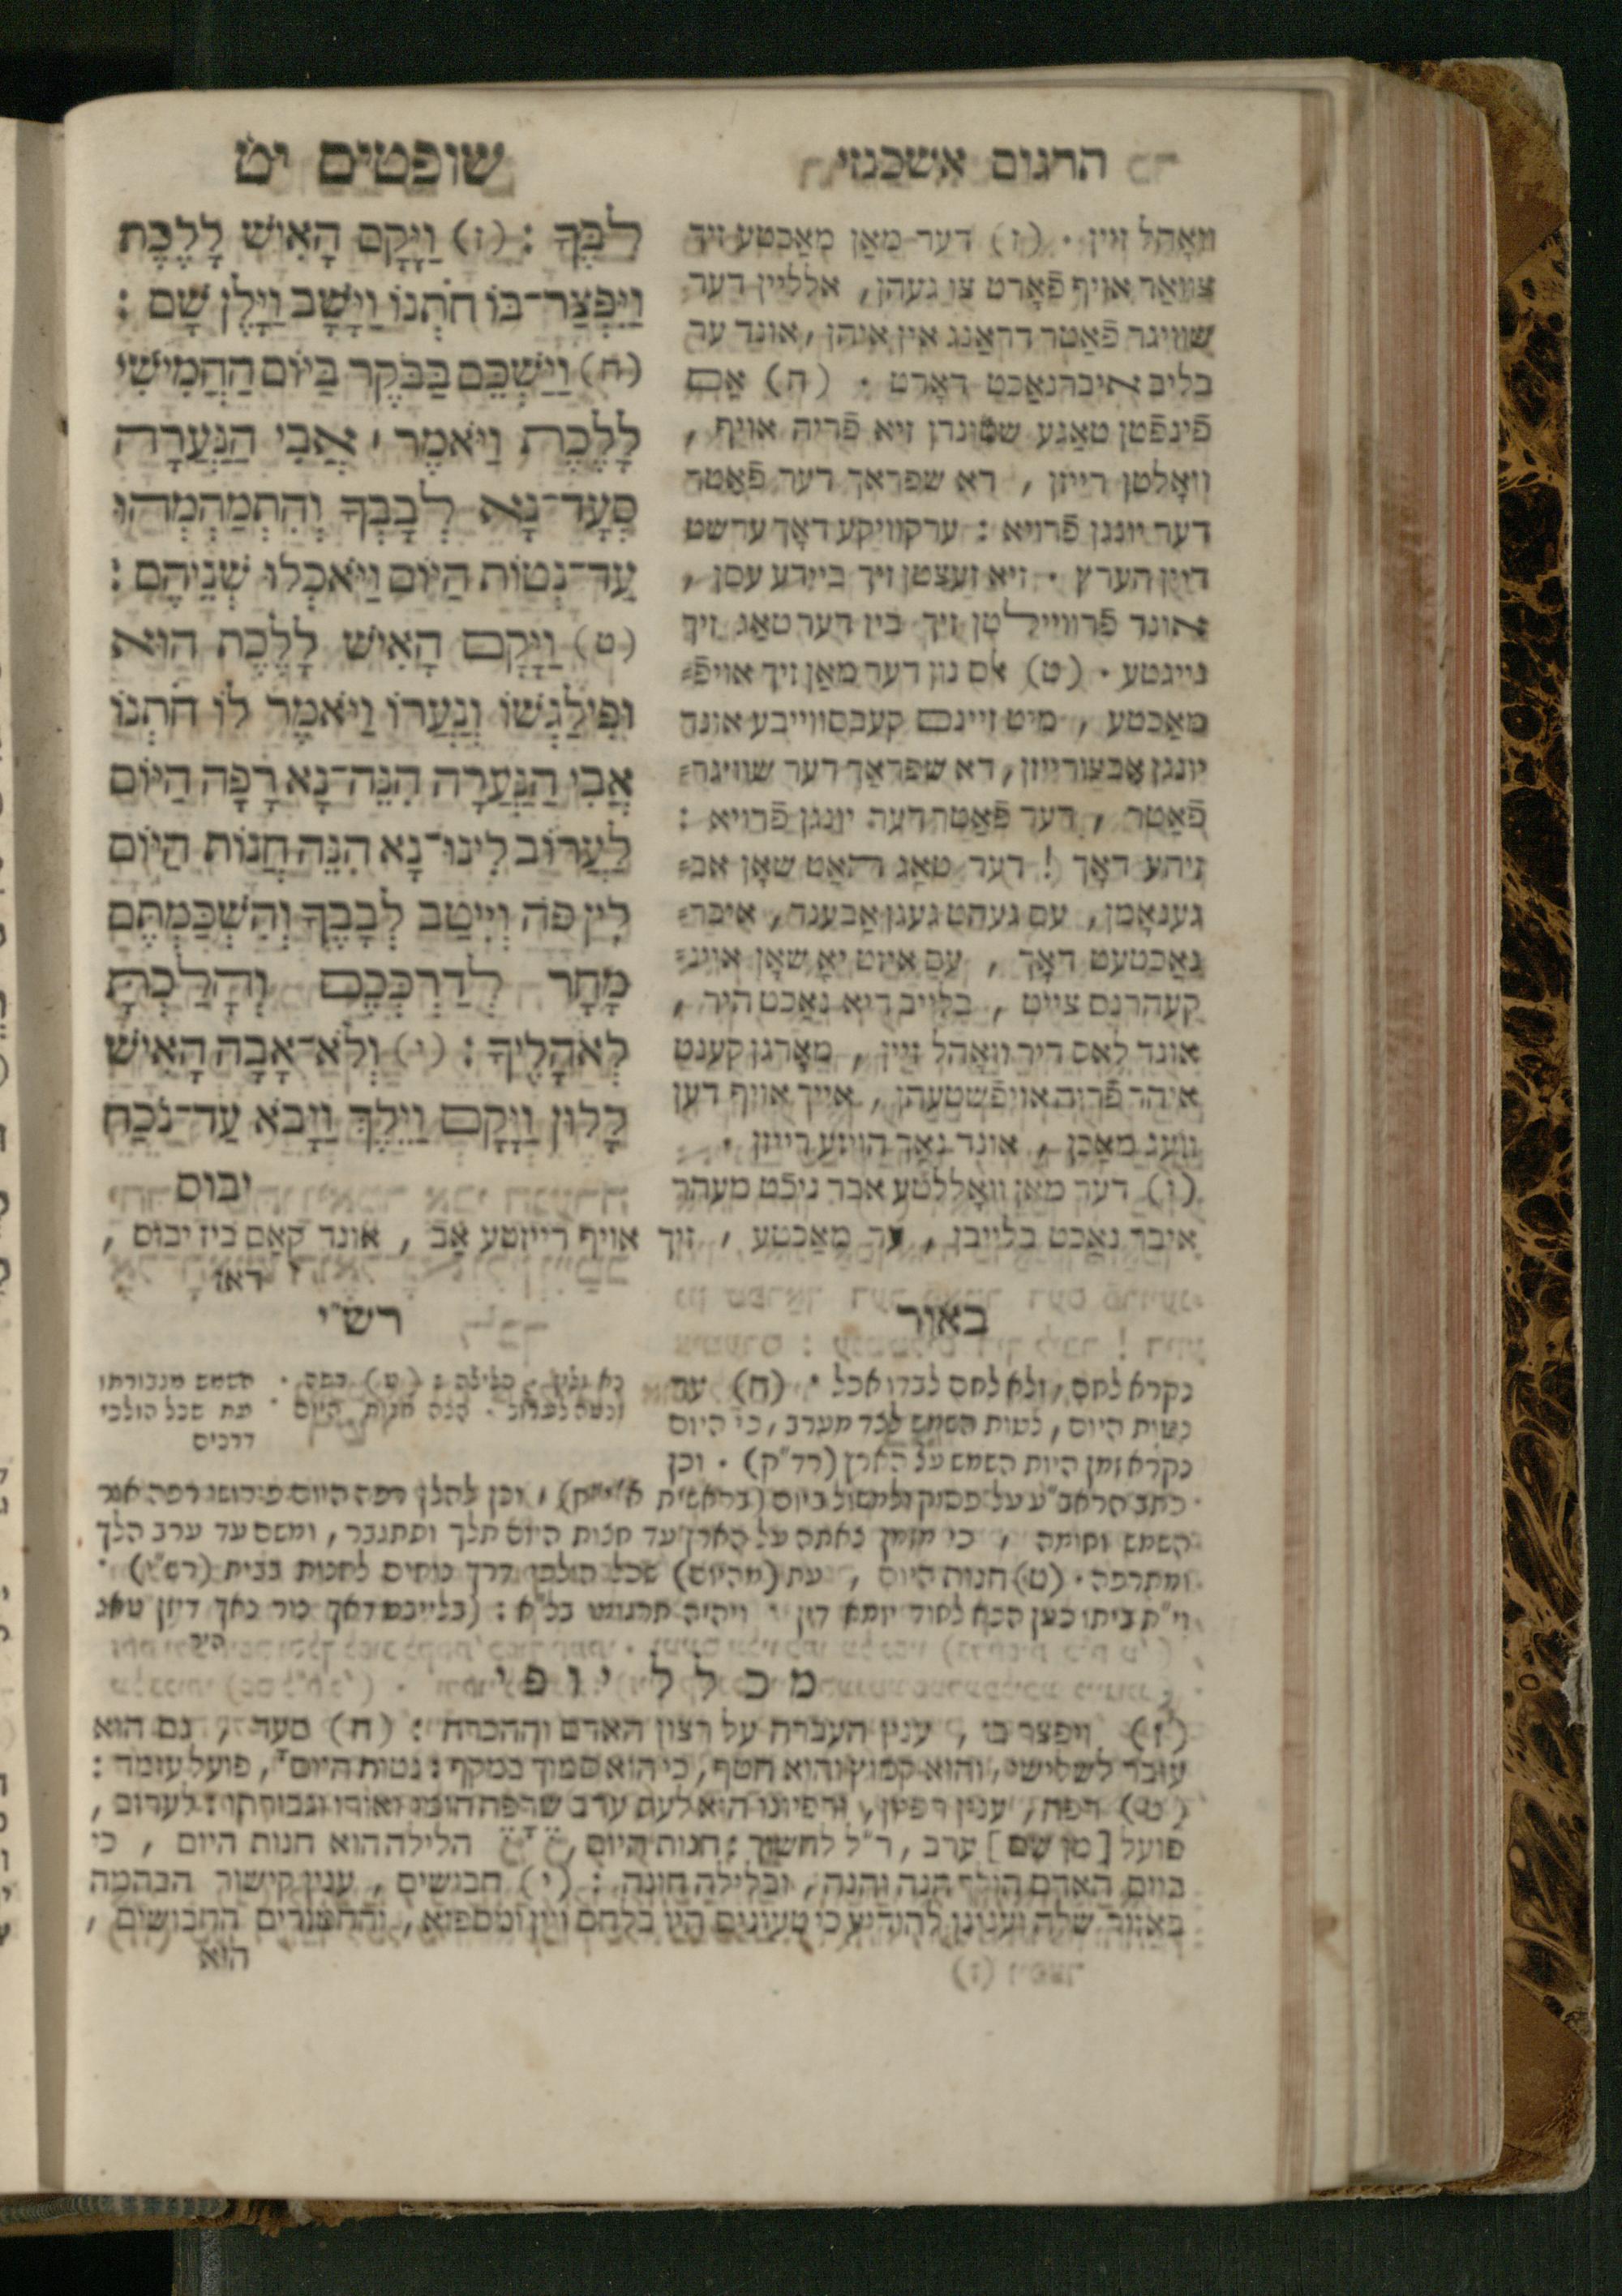 תרגום אשכנזי
שופטים יט
לִבֶּךָ : (ז) וַיָּקָם הָאִישׁ לָלֶכֶת
וַיִּפְצַר־בּוֹ חֹתְנוֹ וַיָּשָׁב וַיָּלֶן שָׁם :
(ח) וַיַּשְׁכֵּם בַּבֹּקֶר בַּיּוֹם הַחֲמִישִׁי
לָלֶכֶת וַיֹּאמֶר ׀ אֲבִי הַנַּעֲרָה
סְעָד־נָא לְבָבְךָ וְהִתְמַהְמְהוּ
עַד־נְטוֹת הַיּוֹם וַיֹּאכְלוּ שְׁנֵיהֶם :
(ט) וַיָּקָם הָאִישׁ לָלֶכֶת הוּא
וּפִילַגְשׁוֹ וְנַעֲרוֹ וַיֹּאמֶר לוֹ חֹתְנוֹ
אֲבִי הַנַּעֲרָה הִנֵּה־נָא רָפָה הַיּוֹם
לַעֲרוֹב לִינוּ־נָא הִנֵּה חֲנוֹת הַיּוֹם
לִין פֹּה וְיִיטַב לְבָבֶךָ וְהִשְׁכַּמְתֶּם
מָחָר לְדַרְכְּכֶם וְהָלַכְתָּ
לְאֹהָלֶיךָ : (י) וְלֹא־אָבָה הָאִישׁ
לָלוּן וַיָּקָם וַיֵּלֶךְ וַיָּבֹא עַד־נֹכַח
יבוס
וואָהל זיין . (ז) דער מאַן מאַכטע זיך
צוואַר אויף פֿאָרט צו געהן , אלליין דער
שוויגר פֿאַטר דראַנג אין איהן , אונד ער
בליב איברנאַכט דאָרט . (ח) אַם
פֿינפֿטן טאַגע שטונדן זיא פֿריה אויף ,
וואָלטן רייזן , דא שפראך דער פֿאַטר
דער יונגן פֿרויא : ערקוויקע דאָך ערשט
דיין הערץ . זיא זעצטן זיך ביידע עסן ,
אונד פֿרוויילטן זיך ביז דער טאַג זיך
נייגטע . (ט) אלס נון דער מאַן זיך אויפֿ=
מאַכטע , מיט זיינם קעבסווייבע אונד
יונגן אבצורייזן , דא שפראַך דער שוויגר=
פֿאַטר , דער פֿאַטר דער יונגן פֿרויא :
זיהע דאָך ! דער טאַג האַט שאָן אב=
גענאָמן , עס געהט געגן אַבענד , איבר=
נאַכטעט דאָך , עס איזט יאַ שאָן איינ=
קעהרנס צייט , בלייב דיא נאַכט היר ,
אונד לאס דיר וואָהל זיין , מאָרגן קענט
איהר פֿריה אויפֿשטעהן , אייך אויף דען
וועג מאַכן , אונד נאַך הויזע רייזן .
(י) דער מאן וואָללטע אבר ניכֿט מעהר
איבר נאַכט בלייבן , ער מאַכטע , זיך אויף רייזטע אַב , אונד קאַם ביז יבוס ,
דאז
באור
נקרא לחם , ולא לחם לבדו אכל . (ח) עד
נטות היום , נטות השמש לצד מערב , כי היום
נקרא זמן היות השמש על הארץ (רד"ק) . וכן
רש"י
השמש מגבורתו
חנות היום . עת שכל הולכי
דרכים
השמש וחומה , כי מזמן צאתה על הארץ עד חנות היום תלך ותתגבר , ומשם עד ערב הלך
ומתרפה . (ט) חנות היום , עת (מהיום) שכל הולכי דרך נוטים לחנות בבית (רש"י) .
היר
מכלל יופי
(ז) ויפצר בו , ענין העברה על רצון האדם וההכרח : (ח) סעד , גם הוא
עובר לשלישי , והוא קמוץ והוא חטף , כי הוא סמוך במקף : נטות היום , פועל עומד :
(ט) רפה , ענין רפיון , ורפיונו הוא לעת ערב שרפה חומו ואורו וגבורתו : לערוב ,
פועל [מן שם] ערב , ר"ל לחשוך : חנות היום , הלילה הוא חנות היום , כי
ביום האדם הולך הנה והנה , ובלילה חונה : (י) חבושים , ענין קישור הבהמה
באזור שלה וענינו להודיע כי טעונים היו בלחם ויין ומספוא , והחמורים החבושים ,
הוא